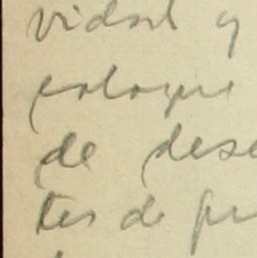 vidad y
coloque
de dese
tes de pr